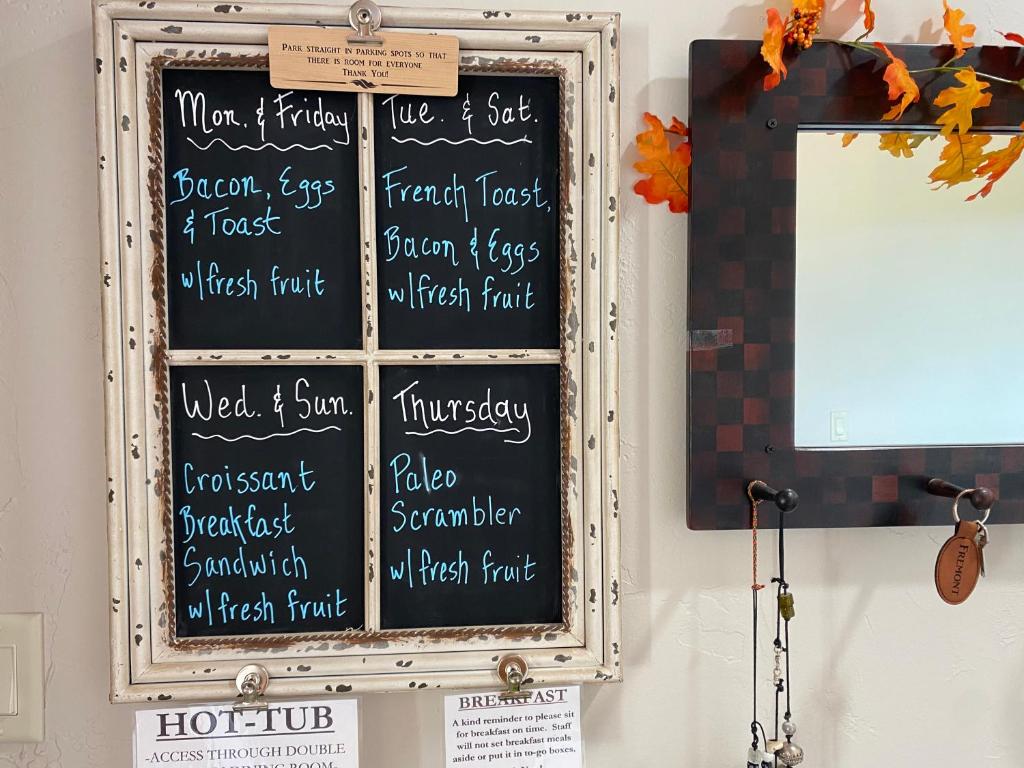 PARK STRAIGHT IN PARKING SPOTS SO THAT
THERE IS ROOM FOR EVERYONE
THANK YOU!
Mon. & Friday
Bacon, Eggs
& Toast
w/fresh fruit
Tue. & Sat.
French Toast,
Bacon & Eggs
w/fresh fruit
Wed. & Sun.
Croissant
Breakfast
Sandwich
w/fresh fruit
Thursday
Paleo
Scrambler
w/fresh fruit
HOT-TUB
-ACCESS THROUGH DOUBLE
ROOM-
BREAKFAST
A kind reminder to please sit
for breakfast on time. Staff
will not set breakfast meals
aside or put it in to-go boxes.
FREMONT